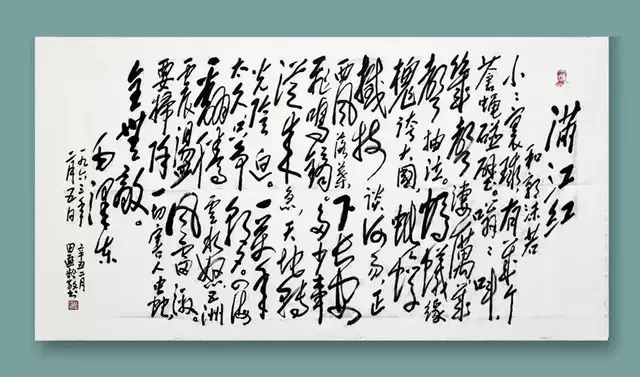 满江红
和郭沫若
小〻寰球有几个
蒼蝇碰壁。嗡〻叫
几声凄厲几
声抽泣。蚂蟻缘
槐誇大國蚍蜉
撼树谈何易。正
西风落葉下长安
飞鸣镝。多少事
从来急,天地转
光陰迫。一萬年
太久只争朝夕。四海
翻腾云水怒五洲
震盪风雷激。
要掃除一切害人虫
全無敵。
毛泽东
一九六三年
二月五日
辛丑二月